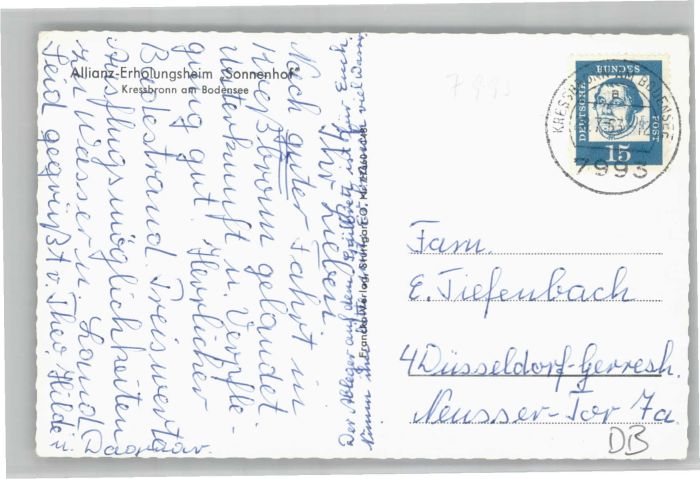 Allianz-Erholungsheim "Sonnenhof"
Kressbronn am Bodensee
Ihr Lieben.
Nach guter Fahrt in
Kreßbronn gelandet
Unterkunft u. Verpfle-
gung gut. Herrlicher
Badestrand. Preiswerte
Ausflugsmöglichkeiten
zu Wasser u. Land
Seid gegrüßt v. Theo, Hilde
u. Dagmar.
Der Ableger auf dem ist für Euch.
viel warm.
7993
DEUTSCHE
BUNDES
POST
15
KRESSBRONN AM BODENSEE
7993
Fam.
E. Tiefenbach
4 Düsseldorf-Gerresh.
Neusser-Tor 7a.
DB